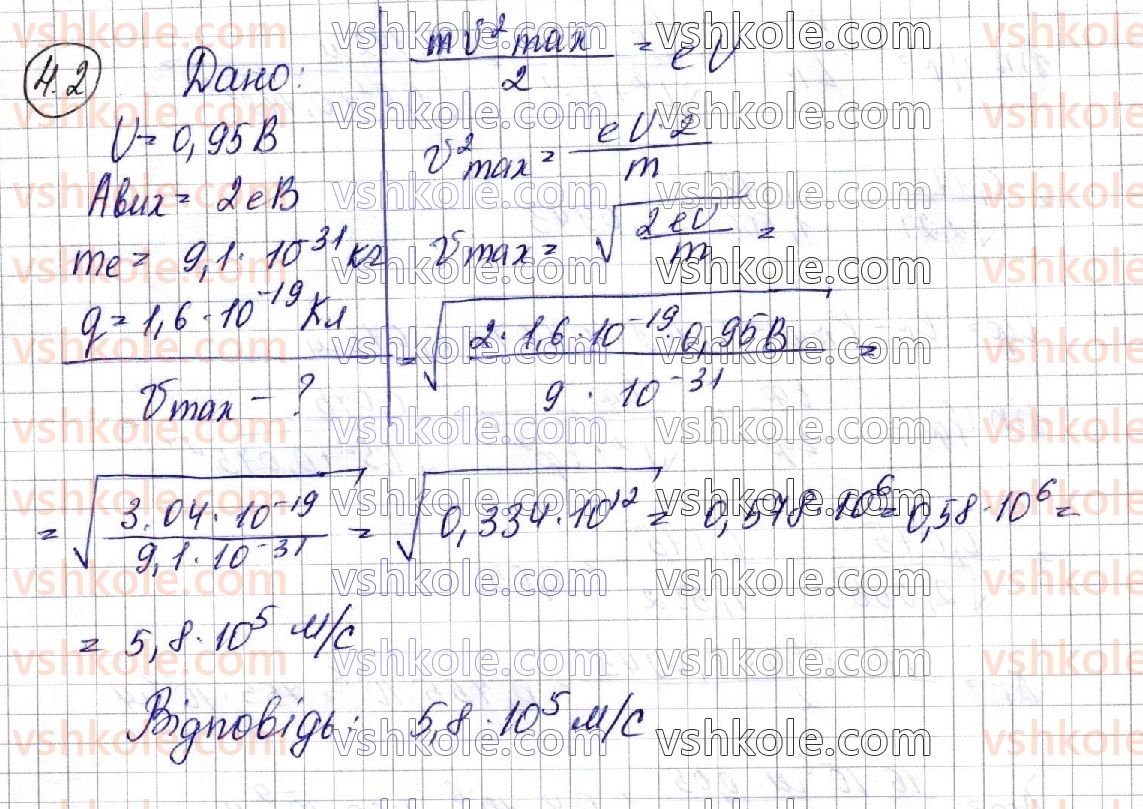 4.2 Дано:
U = 0,95 В
Aвих = 2 еВ
me = 9,1 · 10⁻³¹ кг
q = 1,6 · 10⁻¹⁹ Кл
υmax – ?
mυ²max / 2 = eU
υ²max = eU · 2 / m
υmax = √(2eU / m) =
= √(2 · 1,6 · 10⁻¹⁹ · 0,95 В / 9 · 10⁻³¹) =
= √(3.04 · 10⁻¹⁹ / 9,1 · 10⁻³¹) = √(0,334 · 10¹²) = 0,578 · 10⁶ = 0,58 · 10⁶ =
= 5,8 · 10⁵ м/с
Відповідь: 5,8 · 10⁵ м/с
vshkole.com